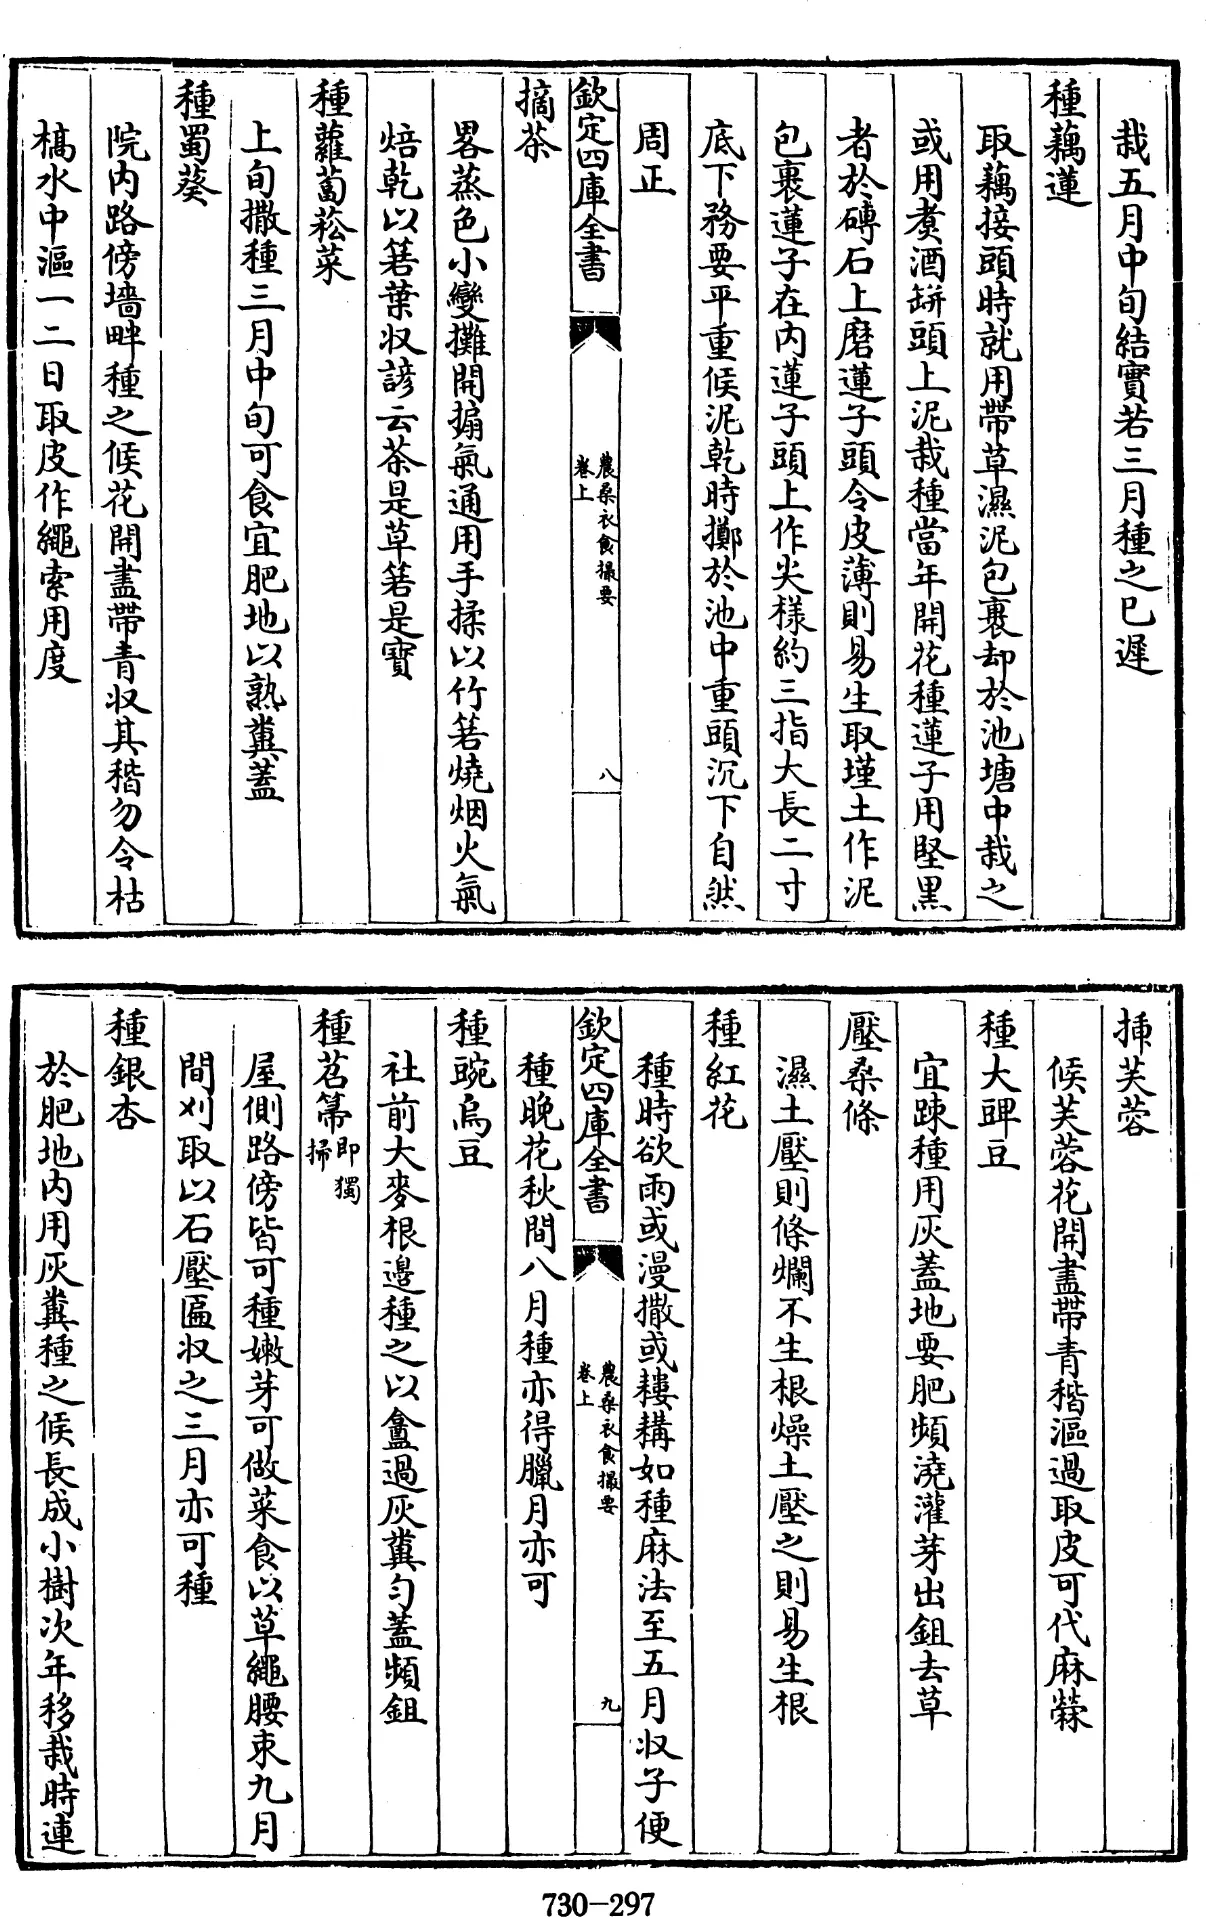 栽五月中旬結實若三月種之已遲
種藕蓮
取藕接頭時就用帶草濕泥包裹却於池塘中栽之
或用煑酒缾頭上泥栽種當年開花種蓮子用堅黑
者於磚石上磨蓮子頭令皮薄則易生取墐土作泥
包裹蓮子在内蓮子頭上作尖様約三指大長二寸
底下務要平重候泥乾時擲於池中重頭沉下自然
周正
欽定四庫全書
農桑衣食撮要
卷上
八
摘茶
畧蒸色小變攤開搧氣通用手揉以竹箬燒烟火氣
焙乾以箬葉収諺云茶是草箬是寶
種蘿蔔菘菜
上旬撒種三月中旬可食宜肥地以熟糞蓋
種蜀葵
院内路傍墻畔種之候花開盡帶青収其稭勿令枯
槁水中漚一二日取皮作繩索用度
揷芙蓉
候芙蓉花開盡帶青稭漚過取皮可代麻檾
種大豍豆
宜踈種用灰蓋地要肥頻澆灌芽出鉏去草
壓桑條
濕土壓則條爛不生根燥土壓之則易生根
種紅花
種時欲雨或漫撒或耬耩如種麻法至五月収子便
欽定四庫全書
農桑衣食撮要
卷上
九
種晚花秋間八月種亦得臘月亦可
種豌烏豆
社前大麥根邉種之以盦過灰糞勻蓋頻鉏
種苕箒即獨掃
屋側路傍皆可種嫩芽可做菜食以草繩腰束九月
間刈取以石壓匾収之三月亦可種
種銀杏
於肥地内用灰糞種之候長成小樹次年移栽時連
730-297